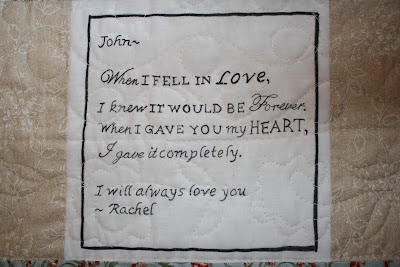 John~
When I FELL IN Love,
I knew IT WOULD BE Forever.
When I GAVE YOU my HEART,
I gave it completely.
I will always love you
~ Rachel